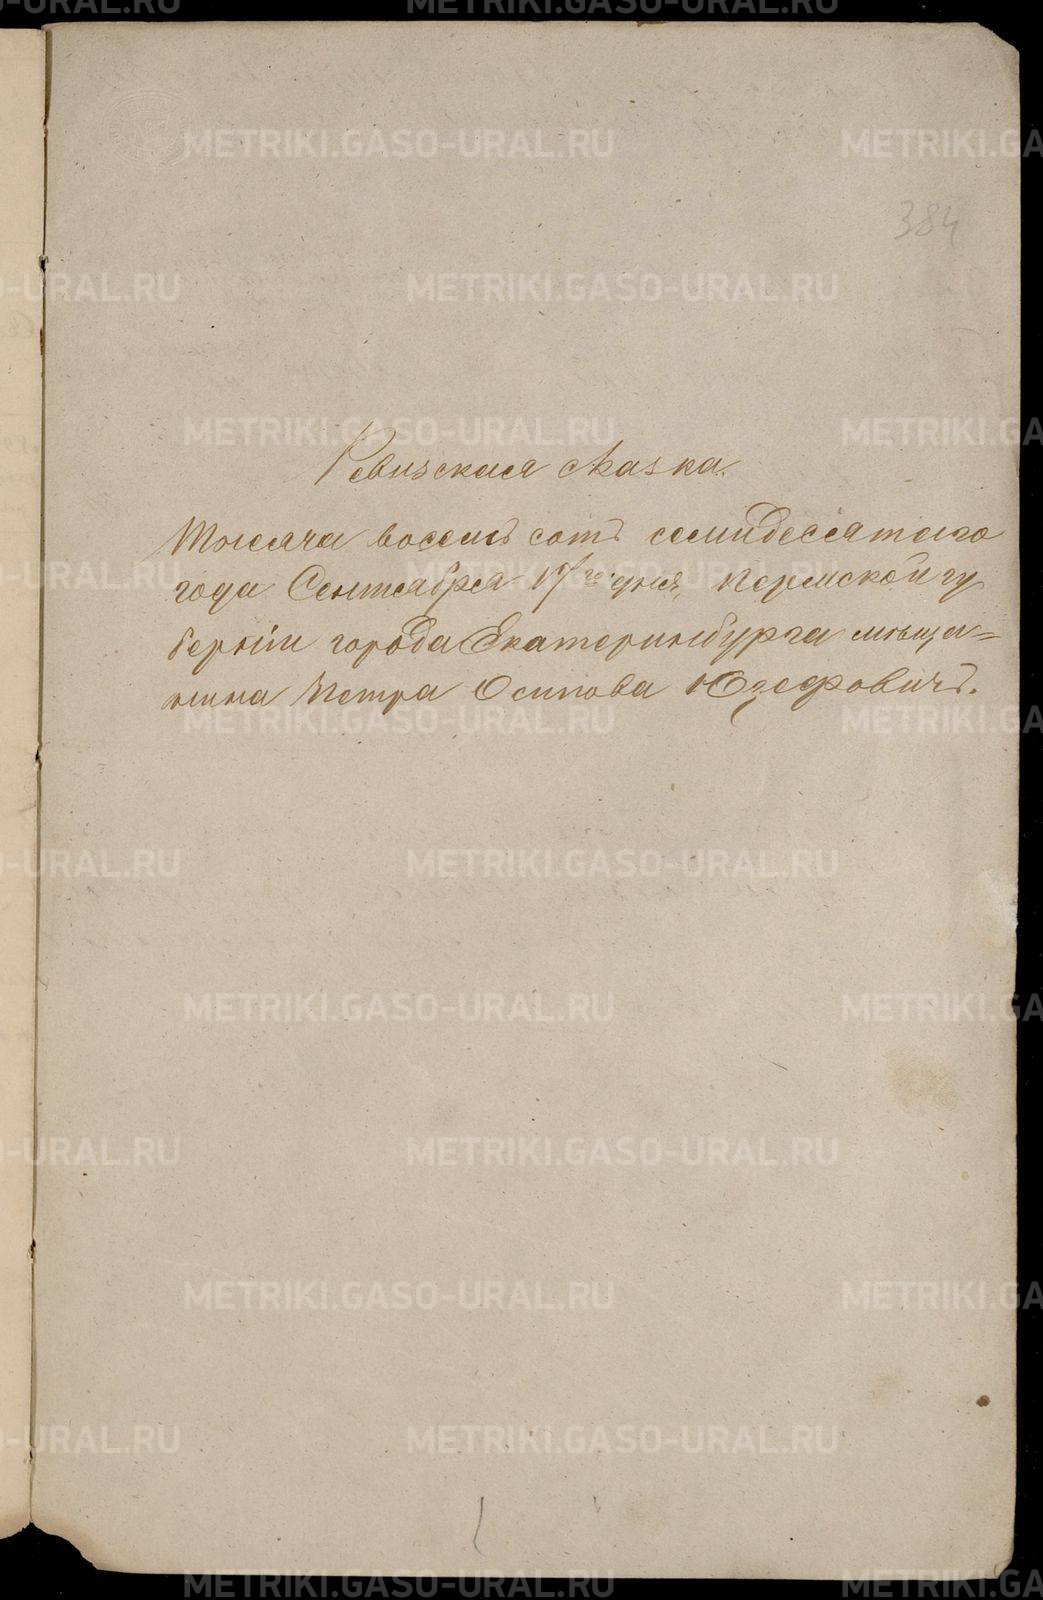 384
Ревизская сказка.
Тысяча восемь сотъ семидесятого
года Сентября 17го дня, Пермской гу
берніи города Екатеринбурга мѣща=
нина Петра Осипова Юзефовичъ.
METRIKI.GASO-URAL.RU